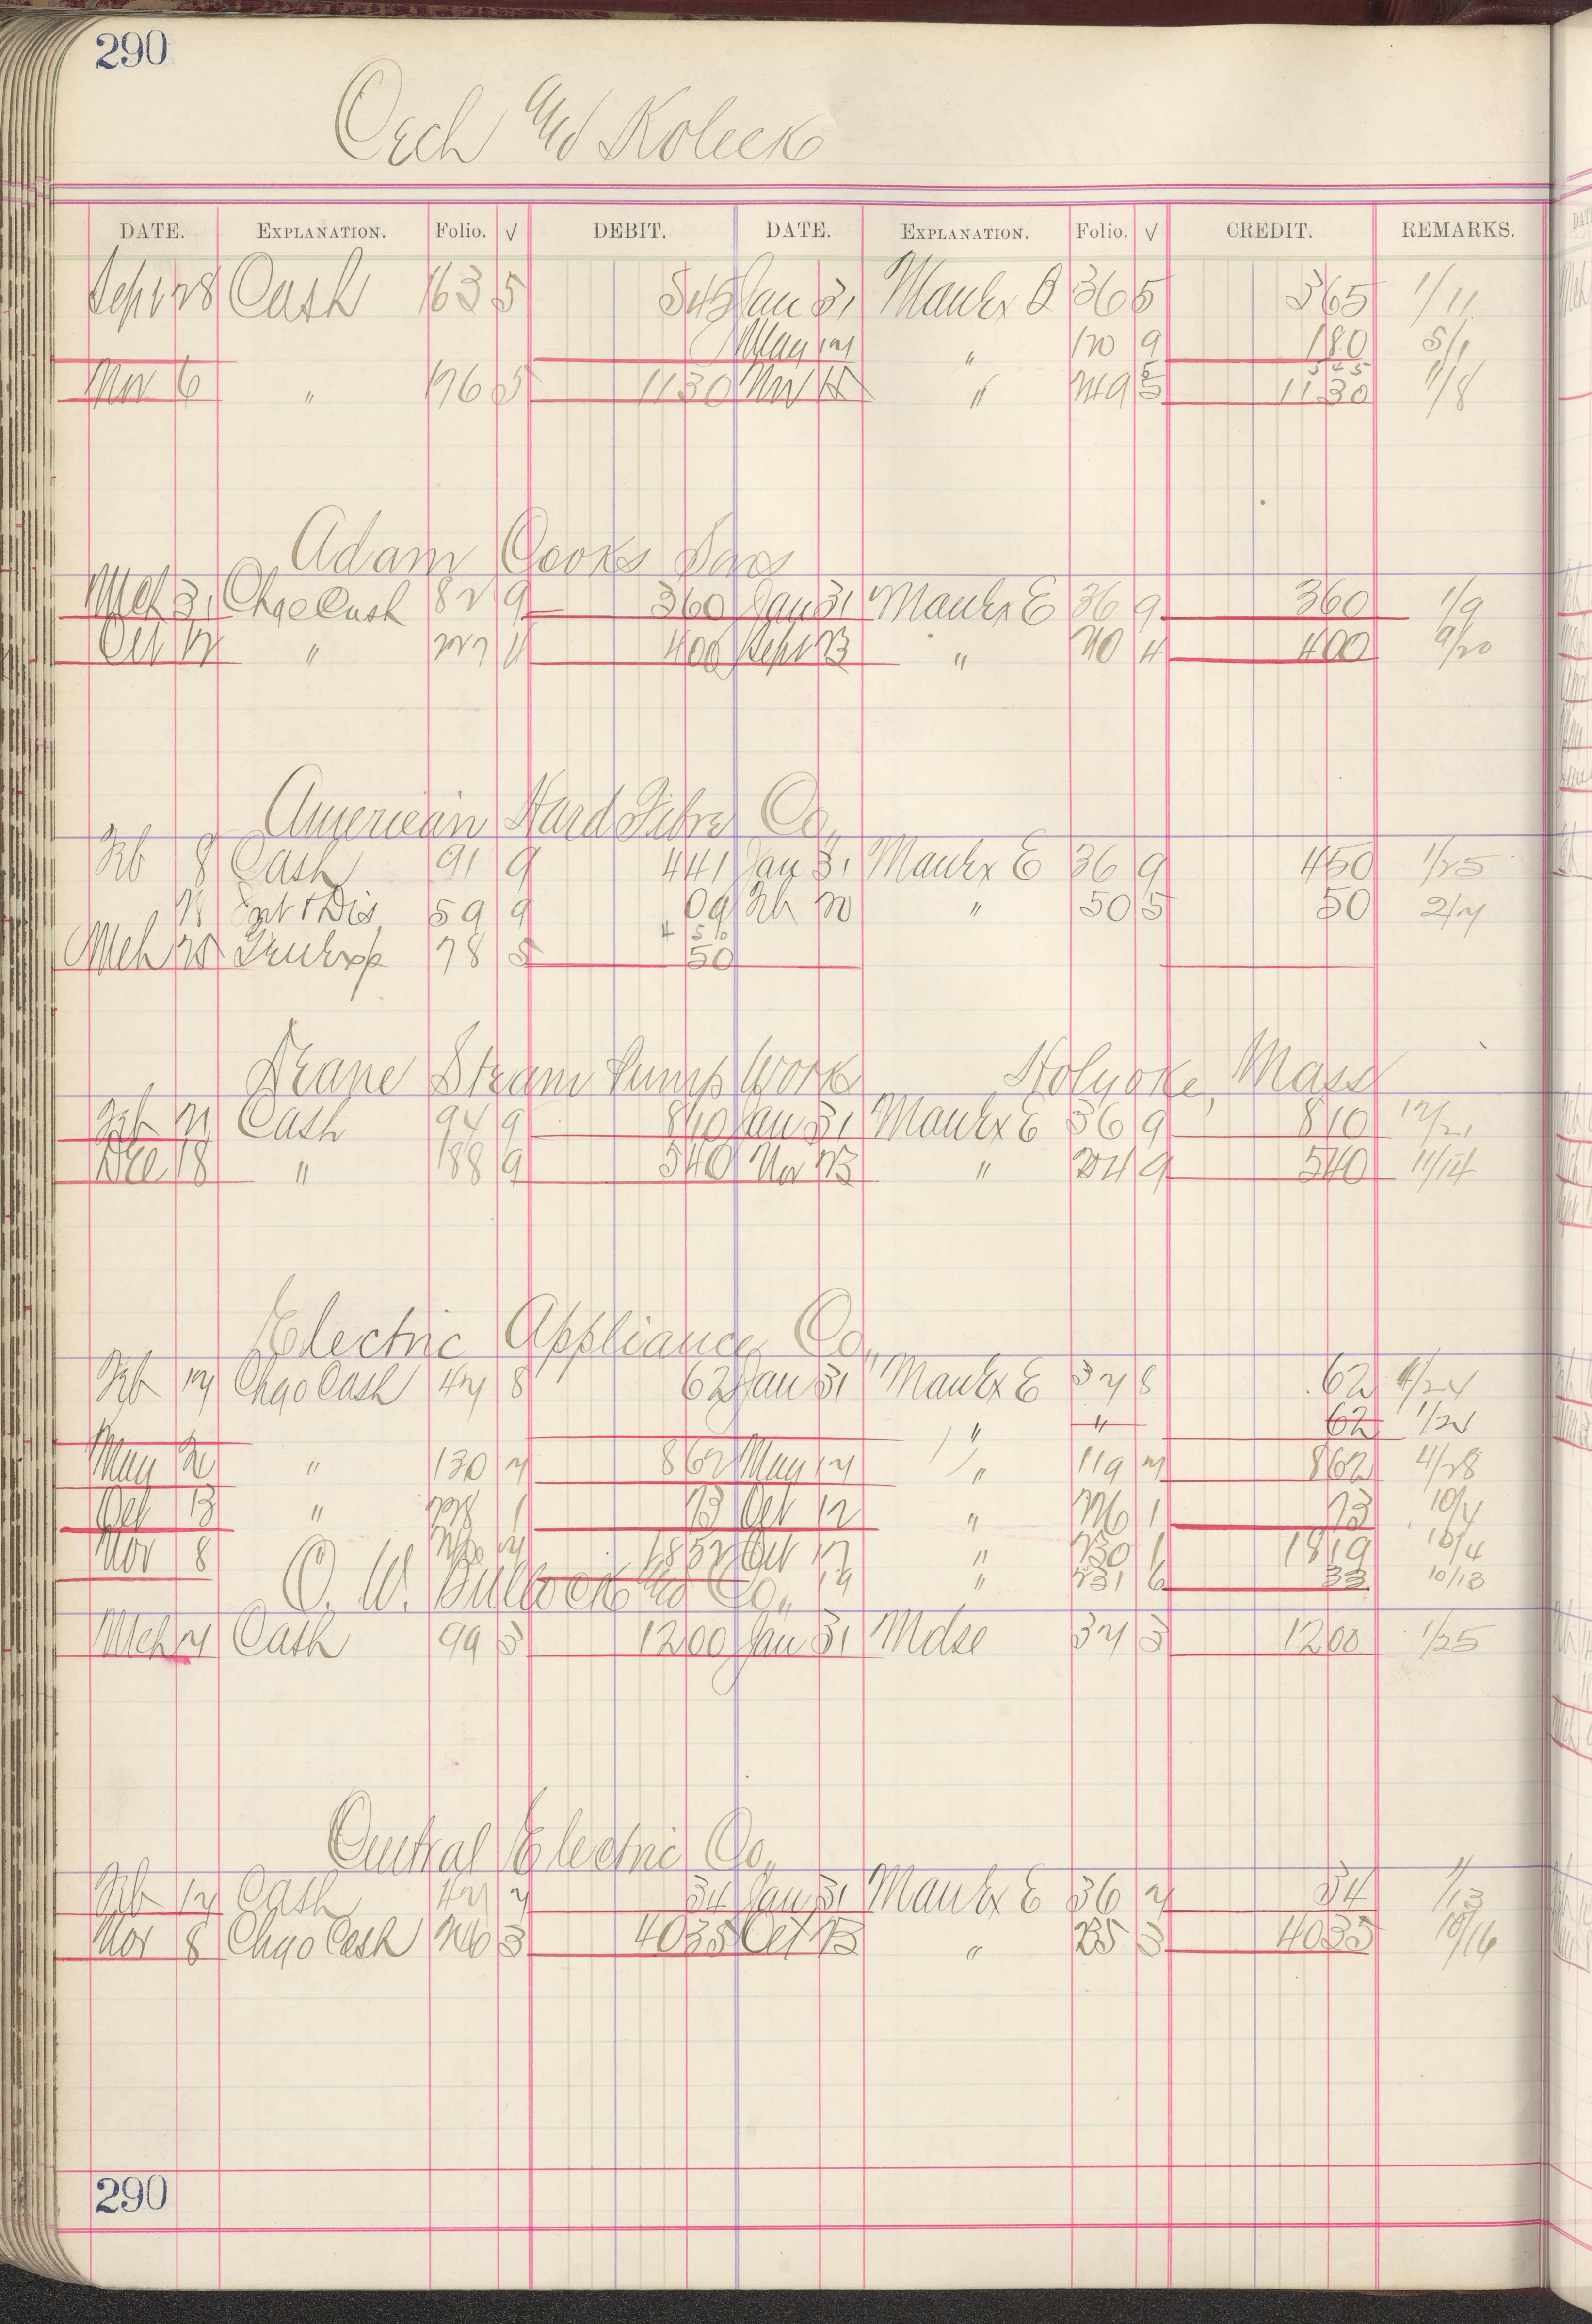 290
Cech and Koleck
DATE. EXPLANATION. Folio. √ DEBIT. DATE. EXPLANATION. Folio. √ CREDIT. REMARKS.
Sept 28 Cash 163 5 545 Jan 31 Manfg 36 5 365 1/11
May " 9 180 5/1
545
Nov 6 " 5 1130 Nov " 5 1130 11/8
Adam Cooks Sons
Mch 31 Chgo Cash 82 9 360 Jan 31 Manfg E 36 9 360 1/9
Oct " 400 Sept " 4 400 9/20
American Hard Fibre Co.
Feb 8 Cash 91 9 441 Jan 31 Manfg E 36 9 450 1/25
Int & Dis 59 9 09 Feb 20 " 50 5 50 2/7
4 50
Mch 78 5 50
Deane Steam Pump Work Holyoke, Mass
Feb 21 Cash 94 9 810 Jan 31 Manfg E 36 9 810 12/21
Dec 18 " 188 9 540 Nov " 9 540 11/14
Electric Appliance Co.,
Feb 17 Chgo Cash 47 8 62 Jan 31 Manfg E 37 8 62 1/24
" " 62 1/24
May 2 " 130 7 862 May 17 " 119 7 862 4/28
Oct 13 " 1 13 Oct 12 " 1 13 10/7
Nov 8 1852 Oct " 1 1819 10/4
C. W. Bullock and Co., " 6 33 10/13
Mch 7 Cash 99 3 1200 Jan 31 Mdse 37 3 1200 1/25
Central Electric Co.,
Feb 17 Cash 47 7 34 Jan 31 Manfg E 36 7 34 1/13
Nov 8 Chgo Cash 246 3 4035 Oct " 3 4035 10/16
290